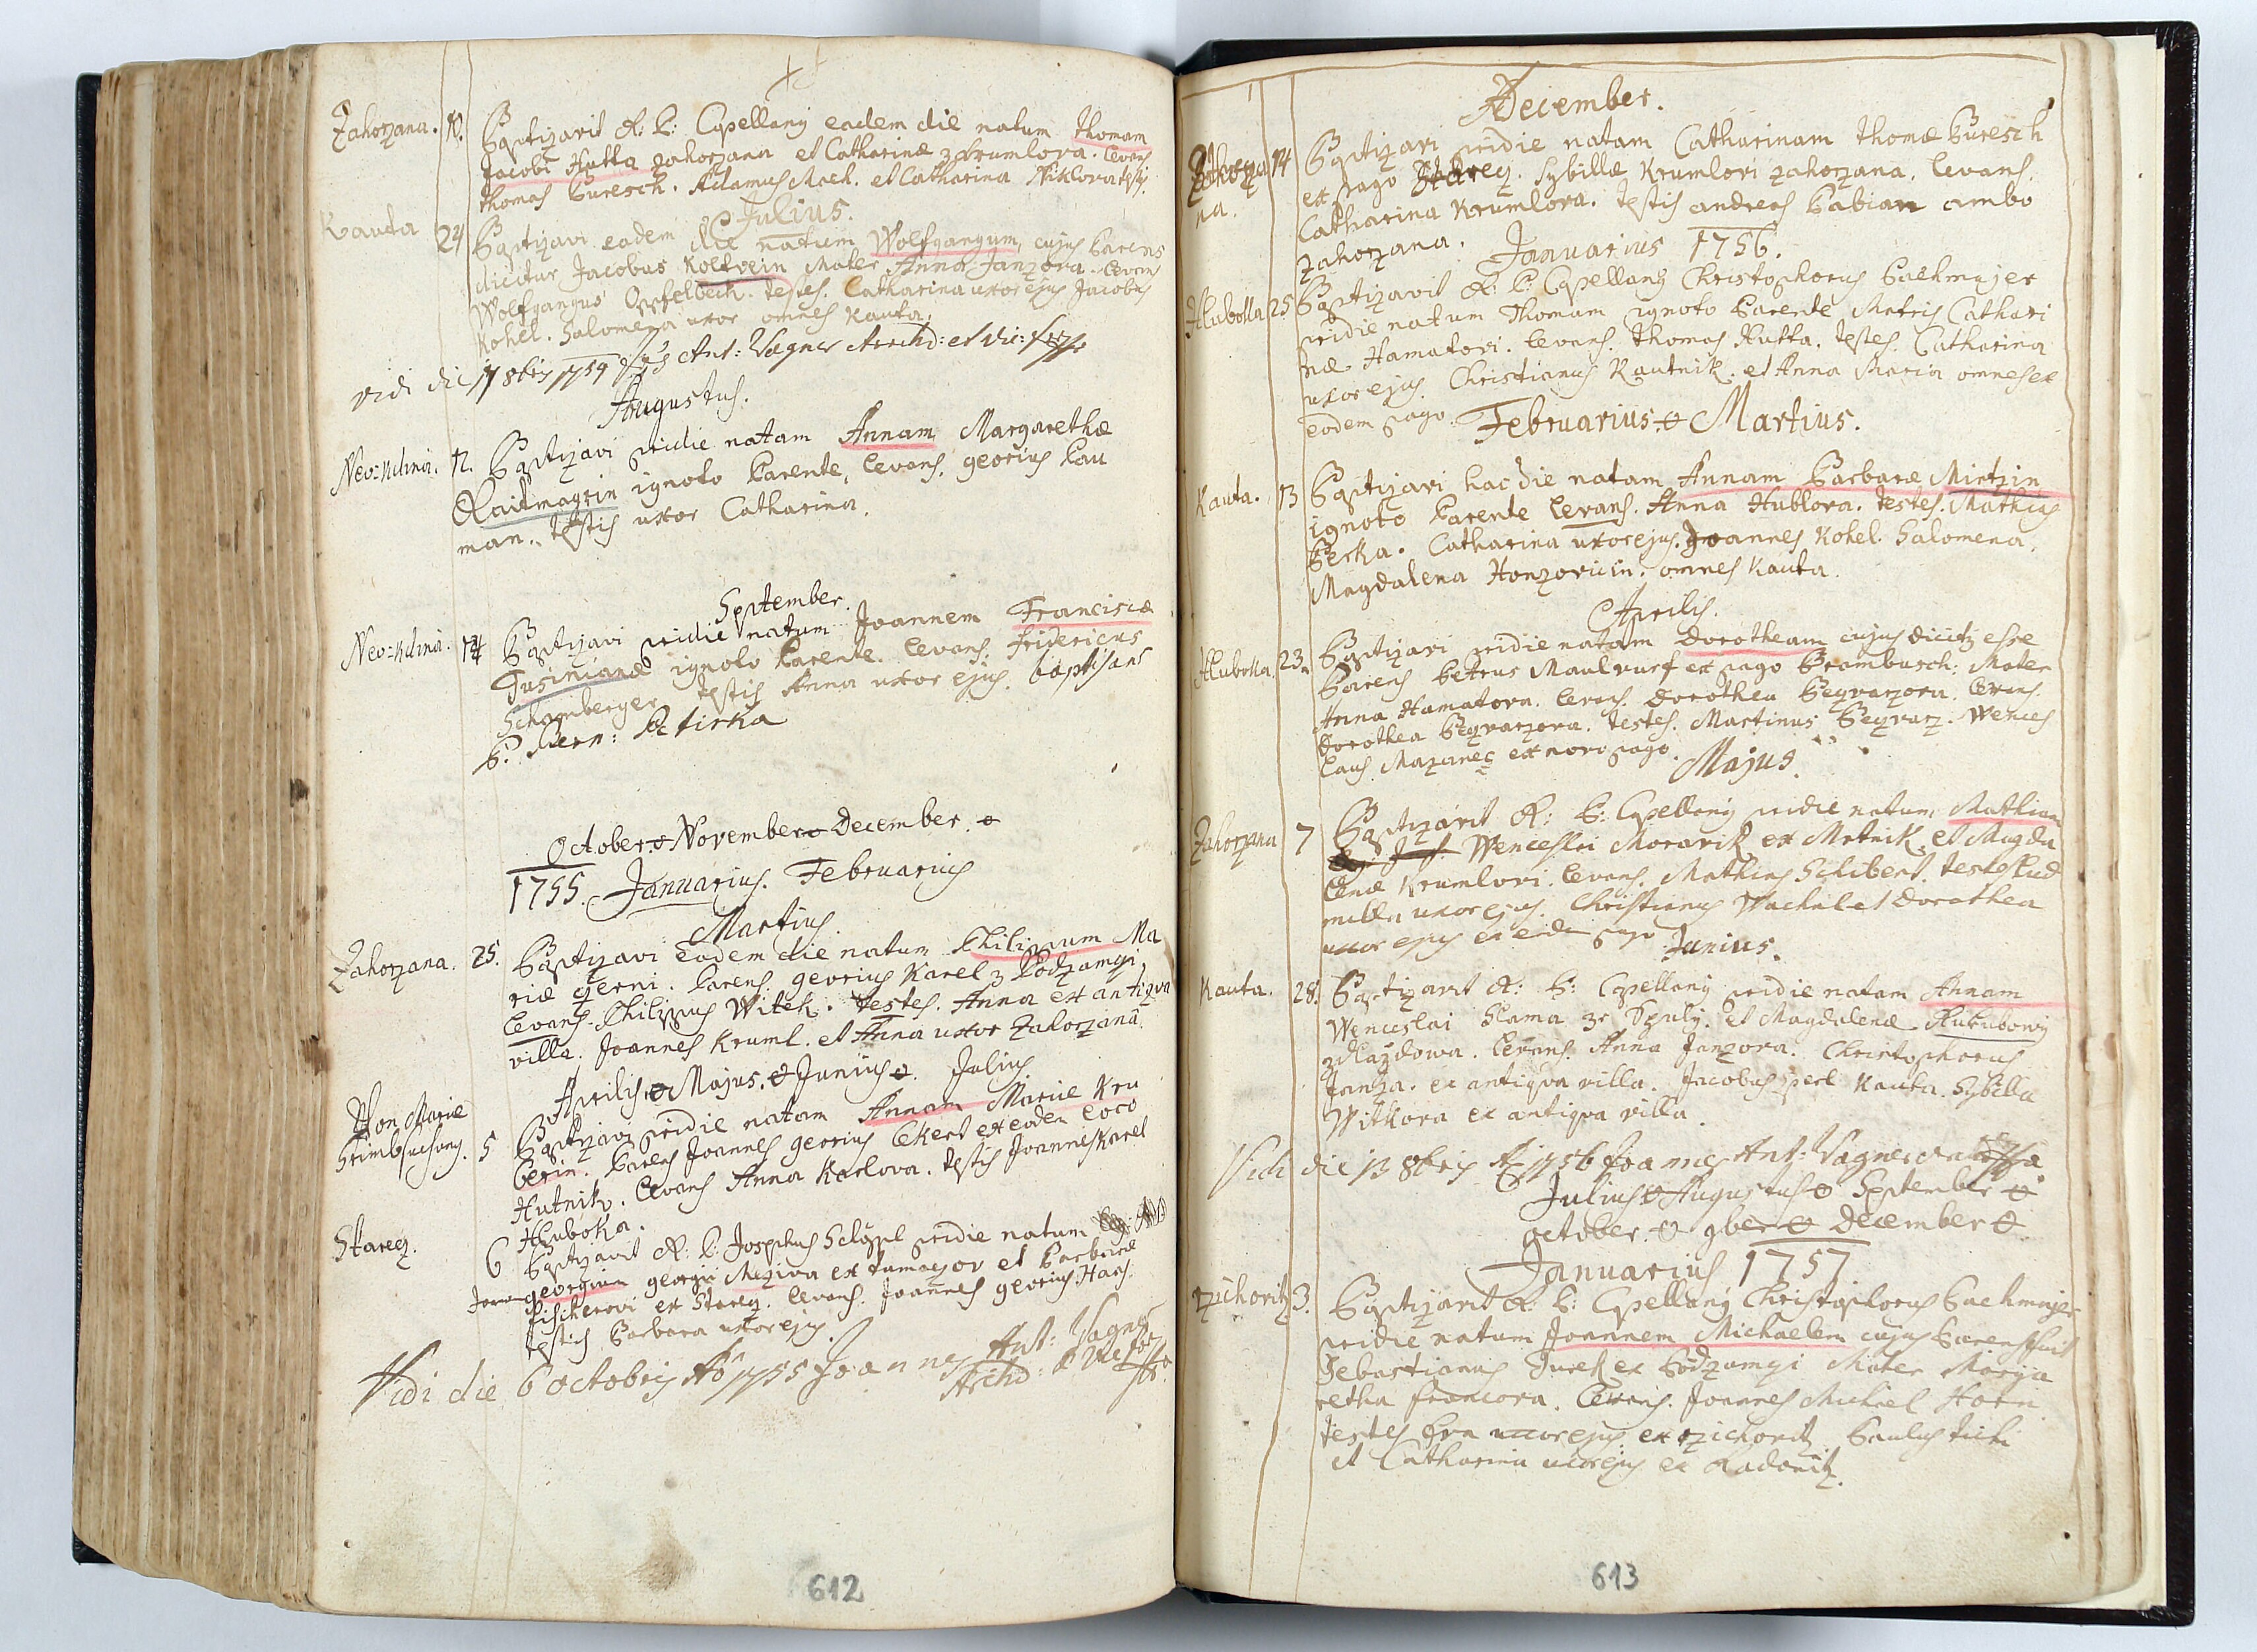 Zahorzana. 10. Baptizavit R: P: Capellanꝫ eadem die natum Thomam
Jacobi Hutta Zahorzana et Catharinæ z Krumlova. levans
Thomas Buresch. Adamus Mach. et Catharina Niklova testis.
Julius.
Kauta 24 Baptizavi eodem die natum Wolfgangum, cujus Parens
dicitur Jacobus Koltvein Mater Anna Janzova. levans
Wolfgangus Opfelbech. testes. Catharina uxor ejus Jacobus
Kohel. Salomena uxor omnes Kauta.
vidi die 17 8bris 1754 Ant: Wagner Archid: et Vic:
Augustus.
Neo=Kdinia. 12. Baptizavi pridie natam Annam Margarethæ
Raitmayrin ignoto Parente, levans. georius Pau
man. testis uxor Catharina.
September.
Neo=Kdinia. 14 Baptizavi pridie natum Joannem Franciscæ
Tusinianæ ignoto Parente. levans. Fridericus
Schamberger testis Anna uxor ejus. baptisans
P. Bern: Petirka
October. o November o December. o
1755. Januarius. Februarius
Martius.
Zahorzana. 25. Baptizavi eodem die natum Philippum Ma
riæ Czerni. Parens. georius Karel z Podzamczi,
levans. Philippus Witek. testes. Anna ex antiqva
villa. Joannes Kruml. et Anna uxor Zahorzana.
Aprilis o Majus. o Junius o. Julius.
Von Mariæ
5 Baptizavi pridie natam Annam Mariæ Kru
berin. Parens Joannes georius Ekert ex eodem loco
Hutnik. levans Anna Karlova. testis Joannes Karel
Hluboka.
Starecz. 6 Baptizavit R: P: Josephus Schöppl pridie natum
georgium georgii Meziva ex Tumaczov et Barbaræ
Fischerovi ex Starecz. levans. Joannes georius Hans.
testis Barbara uxor ejus.
Vidi die 6 octobris Aõ 1755 Joannes Ant: Wagner
Archid: & Vic: for:
612
December.
Zahorza
na. 14 Baptizavi pridie natam Catharinam Thomæ Buresch
ex pago Starecz. Sybillæ Krumlovi Zahorzana. levans.
Catharina Krumlova. testis andreas Babian ambo
Zahorzana.
Januarius 1756.
Hluboka 25 Baptizavit R: P: Capellanꝫ Christophorus Bachmajer
pridie natum Thomam ignoto Parente Matris Cathari
næ Hamatovi. levans. Thomas Hutta. testes. Catharina
uxor ejus. Christianus Kautnik. et Anna Maria omnes ex
eodem pago.
Februarius. o Martius.
Kauta. 13 Baptizavi hac die natam Annam Barbaræ Mirtzin
ignoto Parente levans. Anna Hublova. testes. Mathias
Becka. Catharina uxor ejus. Joannes Kohel. Salomena.
Magdalena Honzovicin. omnes Kauta.
Aprilis.
Hluboka. 23. Baptizavi pridie natam Dorotheam cujus dicitur esse
Parens Petrus Maulwurf ex pago Brambusch. Mater
Anna Hamatova. levans. Dorothea Bezvarzova. levans.
Dorothea Bezvarzova. testes. Martinus Bezvarz. Wences
laus Mazanec ex novo pago.
Majus.
Zahorzana 7 Baptizavit R: P: Capellanꝫ pridie natum Mathiam
Wenceslai Moravik ex Metnik, et Magda
lenæ Krumlovi. levans. Mathias Schibert. testes Lud
milla uxor ejus. Christianus Wachal et Dorothea
uxor ejus ex eodem pago
Junius.
Kauta. 28. Baptizavit R: P: Capellanꝫ pridie natam Annam
Wenceslai Slama ze Spuly. et Magdalenæ Kukubowy
z Hlazdowa. levans. Anna Janzova. Christophorus
Janza. ex antiqva villa. Jacobus perl Kauta. Sybilla
Witkova ex antiqva villa.
Vidi die 13 8bris Aõ 1756 Joannes Ant: Wagner
Julius o Augustus o September o
october. o 9ber o December o
Januarius 1757
rzichoritz 3. Baptizavit R: P: Capellanꝫ Christophorus Bachmajer
pridie natum Joannem Michaelem cujus Parens fuit
Sebastianus Jurek ex Podzamczi Mater Marga
retha francova. levans. Joannes Michael Horn
testes Eva uxor ejus ex rzichoritz Paulus tichi
et Catharina uxor ejus ex Radonitz.
613